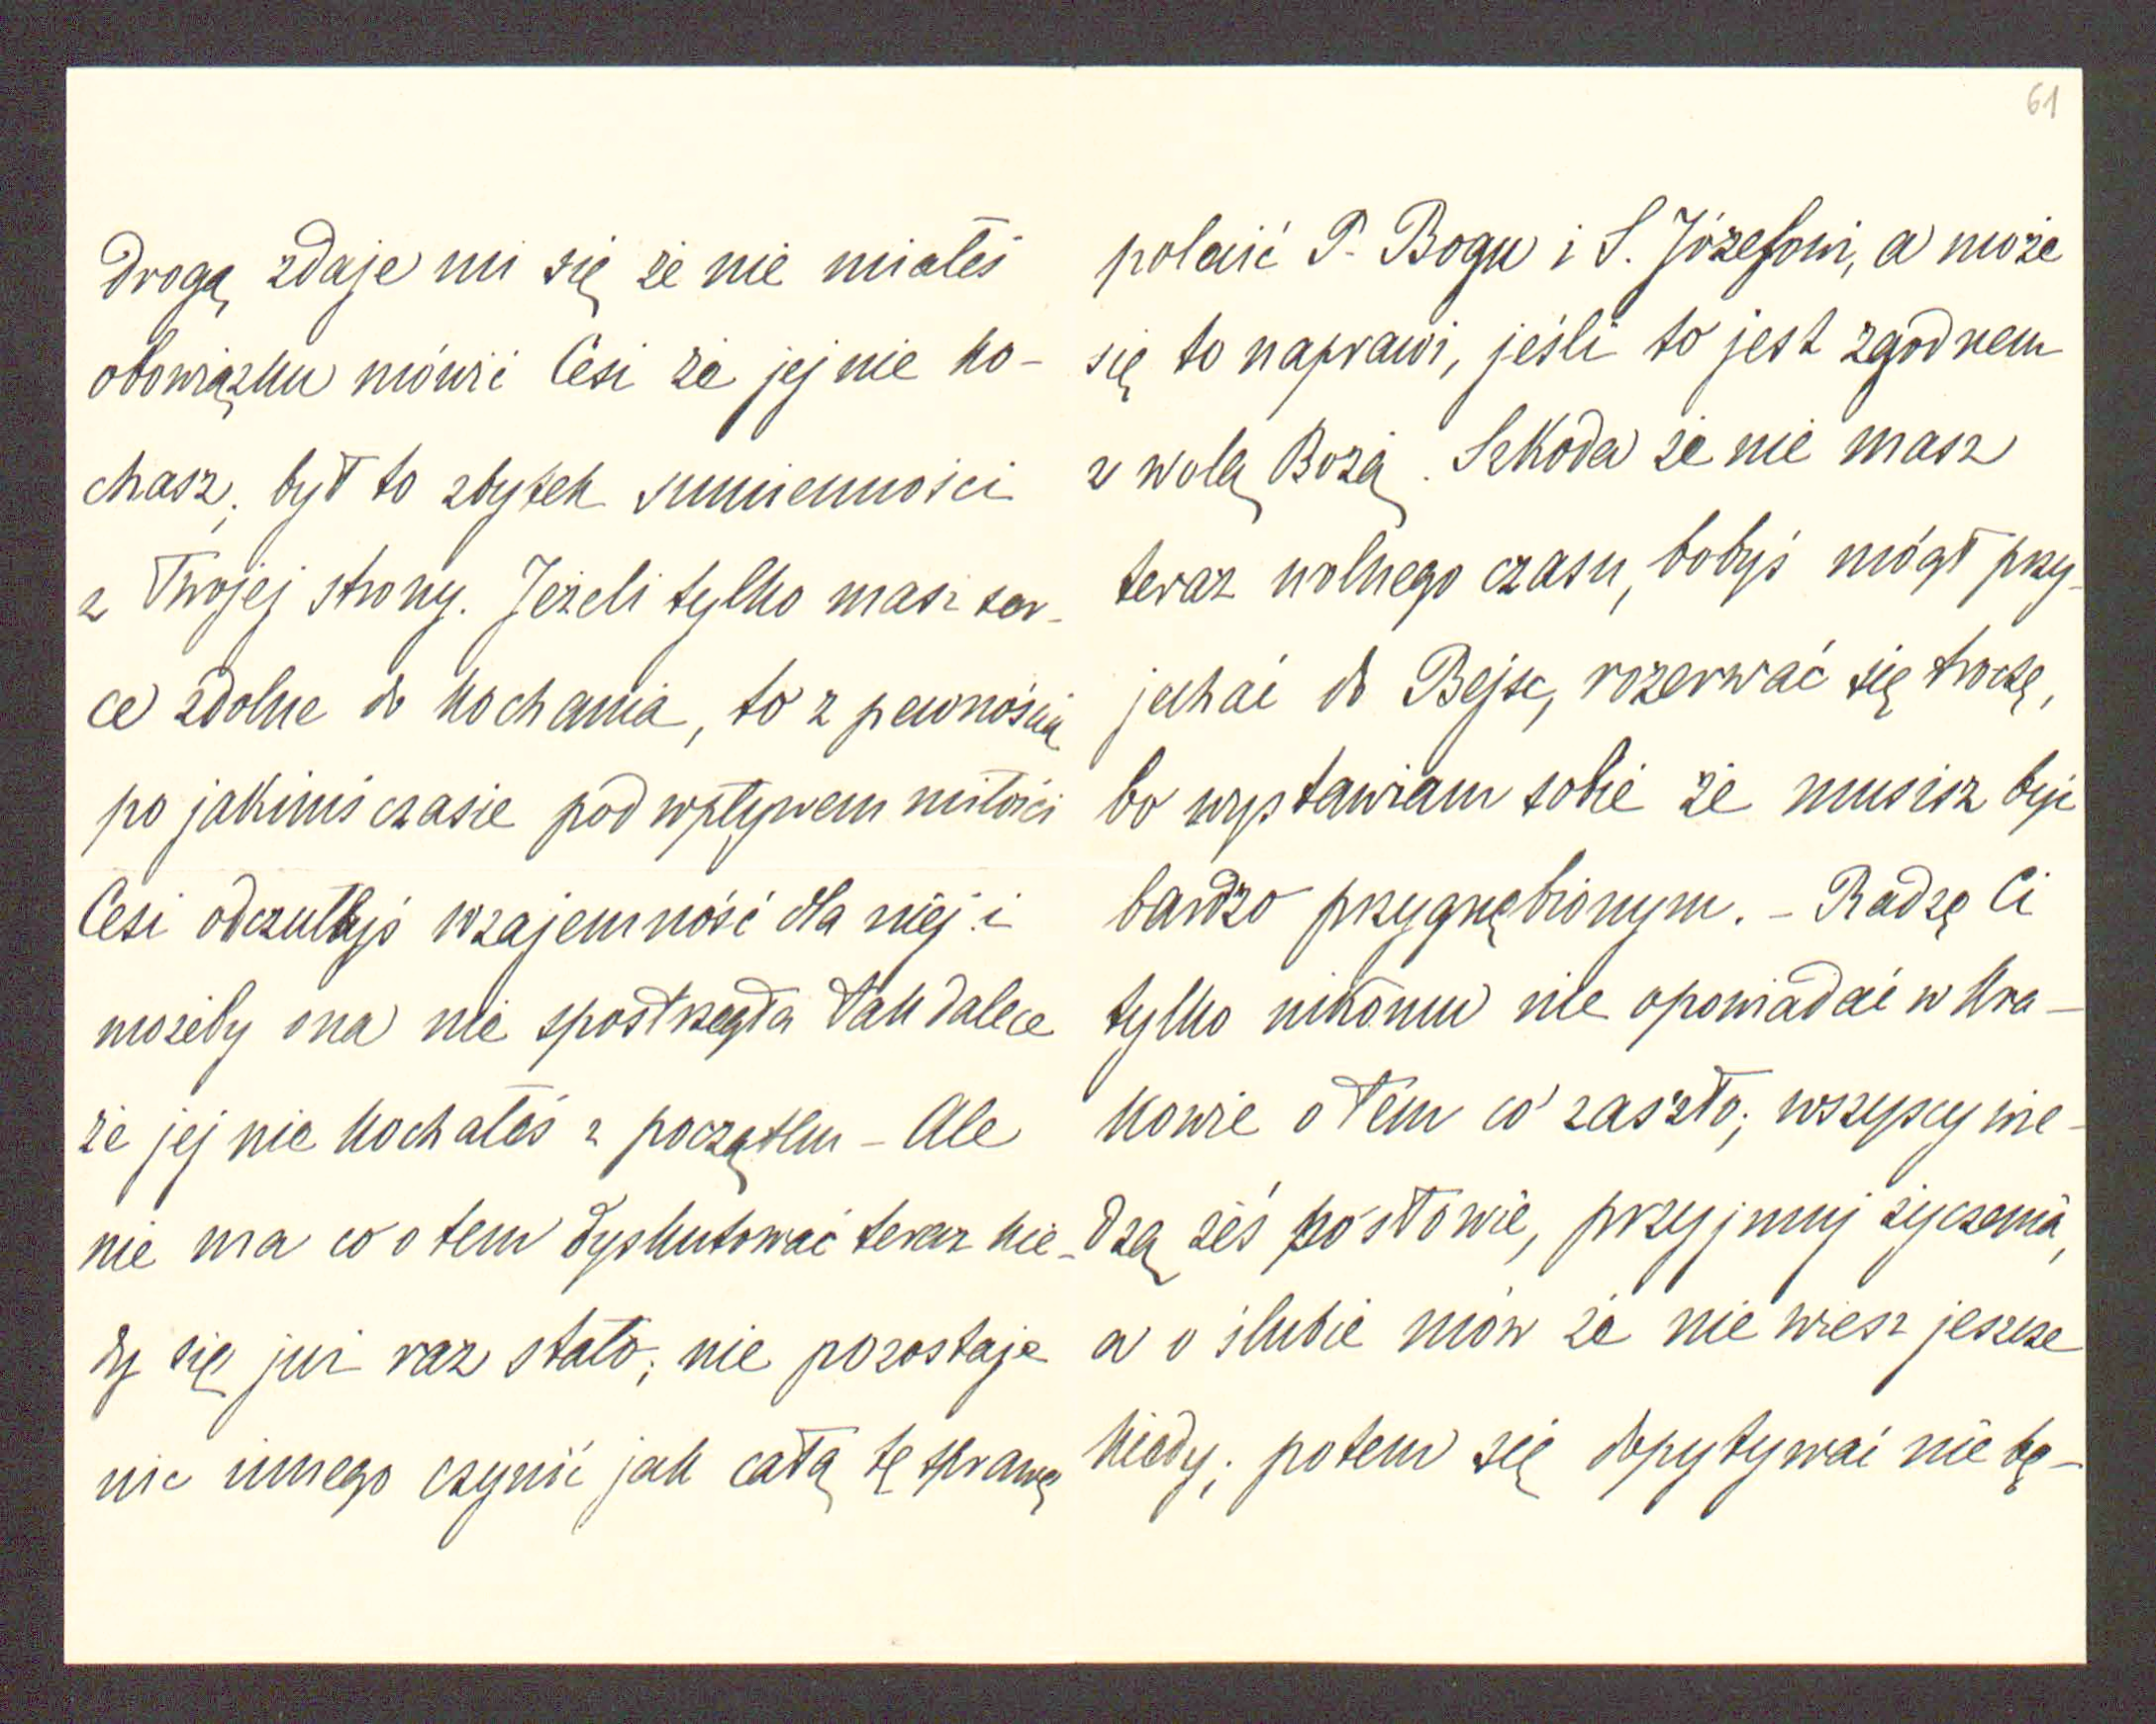 61
drogą zdaje mi się że nie miałeś
obowiązku mówić Cesi że jej nie ko-
chasz; był to zbytek sumienności
z Twojej strony. Jeżeli tylko masz ser-
ce zdolne do kochania, to z pewnością
po jakimś czasie pod wpływem miłości
Cesi odczułbyś wzajemność dla niej i
możeby ona nie spostrzegła tak dalece
że jej nie kochałeś z początku - Ale
nie ma co o tem dyskutować teraz kie-
dy się już raz stało; nie pozostaje
nic innego czynić jak całą tę sprawę
polecić P. Bogu i S. Józefowi, a może
się to naprawi, jeśli to jest zgodnem
z wolą Bożą. Szkoda że nie masz
teraz wolnego czasu, bobyś mógł przy-
jechać do Bejsc, rozerwać się trochę,
bo wystawiam sobie że musisz być
bardzo przygnębionym. - Radzę Ci
tylko nikomu nie opowiadać w Kra-
kowie o tem co zaszło; wszyscy wie-
dzą żeś po słowie, przyjmuj życzenia,
a o ślubie mów że nie wiesz jeszcze
kiedy; potem się dopytywać nie bę-